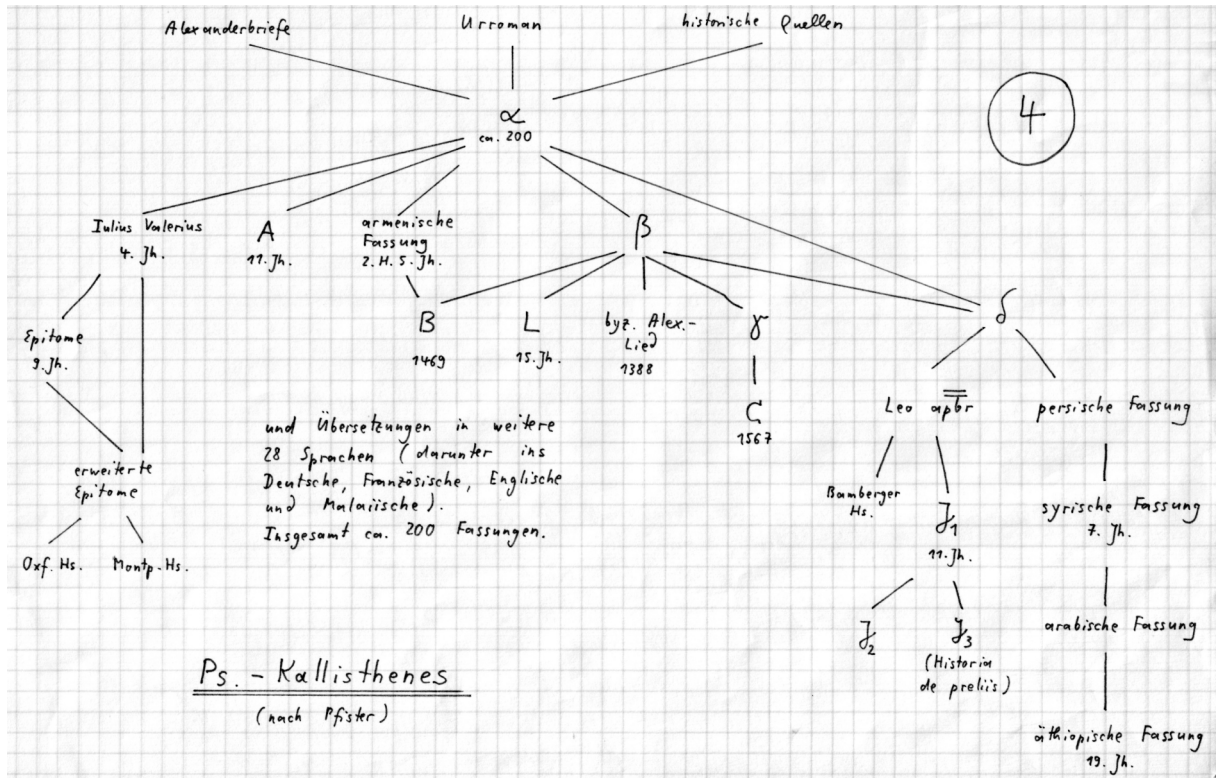 Alexanderbriefe
Urroman
historische Quellen
α
ca. 200
4
Iulius Valerius
4. Jh.
A
11. Jh.
armenische
Fassung
2. H. 5. Jh.
β
Epitome
9. Jh.
B
1469
L
15. Jh.
byz. Alex.-
Lied
1388
γ
C
1567
δ
Leo
persische Fassung
erweiterte
Epitome
Oxf. Hs.
Montp. Hs.
und Übersetzungen in weitere
28 Sprachen (darunter ins
Deutsche, Französische, Englische
und Malaiische).
Insgesamt ca. 200 Fassungen.
Bamberger
Hs.
J₁
11. Jh.
syrische Fassung
7. Jh.
J₂
J₃
(Historia
de preliis)
arabische Fassung
äthiopische Fassung
19. Jh.
Ps. - Kallisthenes
(nach Pfister)